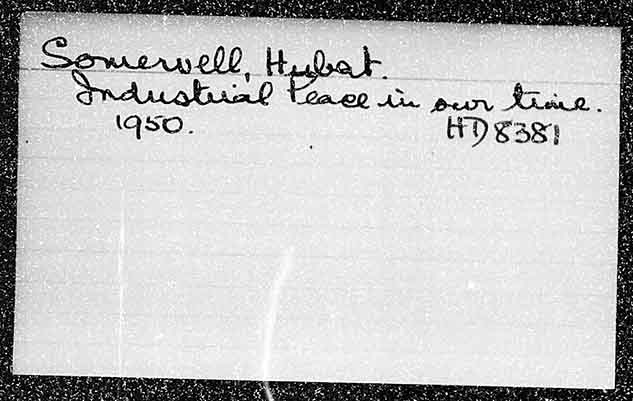 Somervell, Hubat.
Industrial Peace in our time.
1950. HD8381